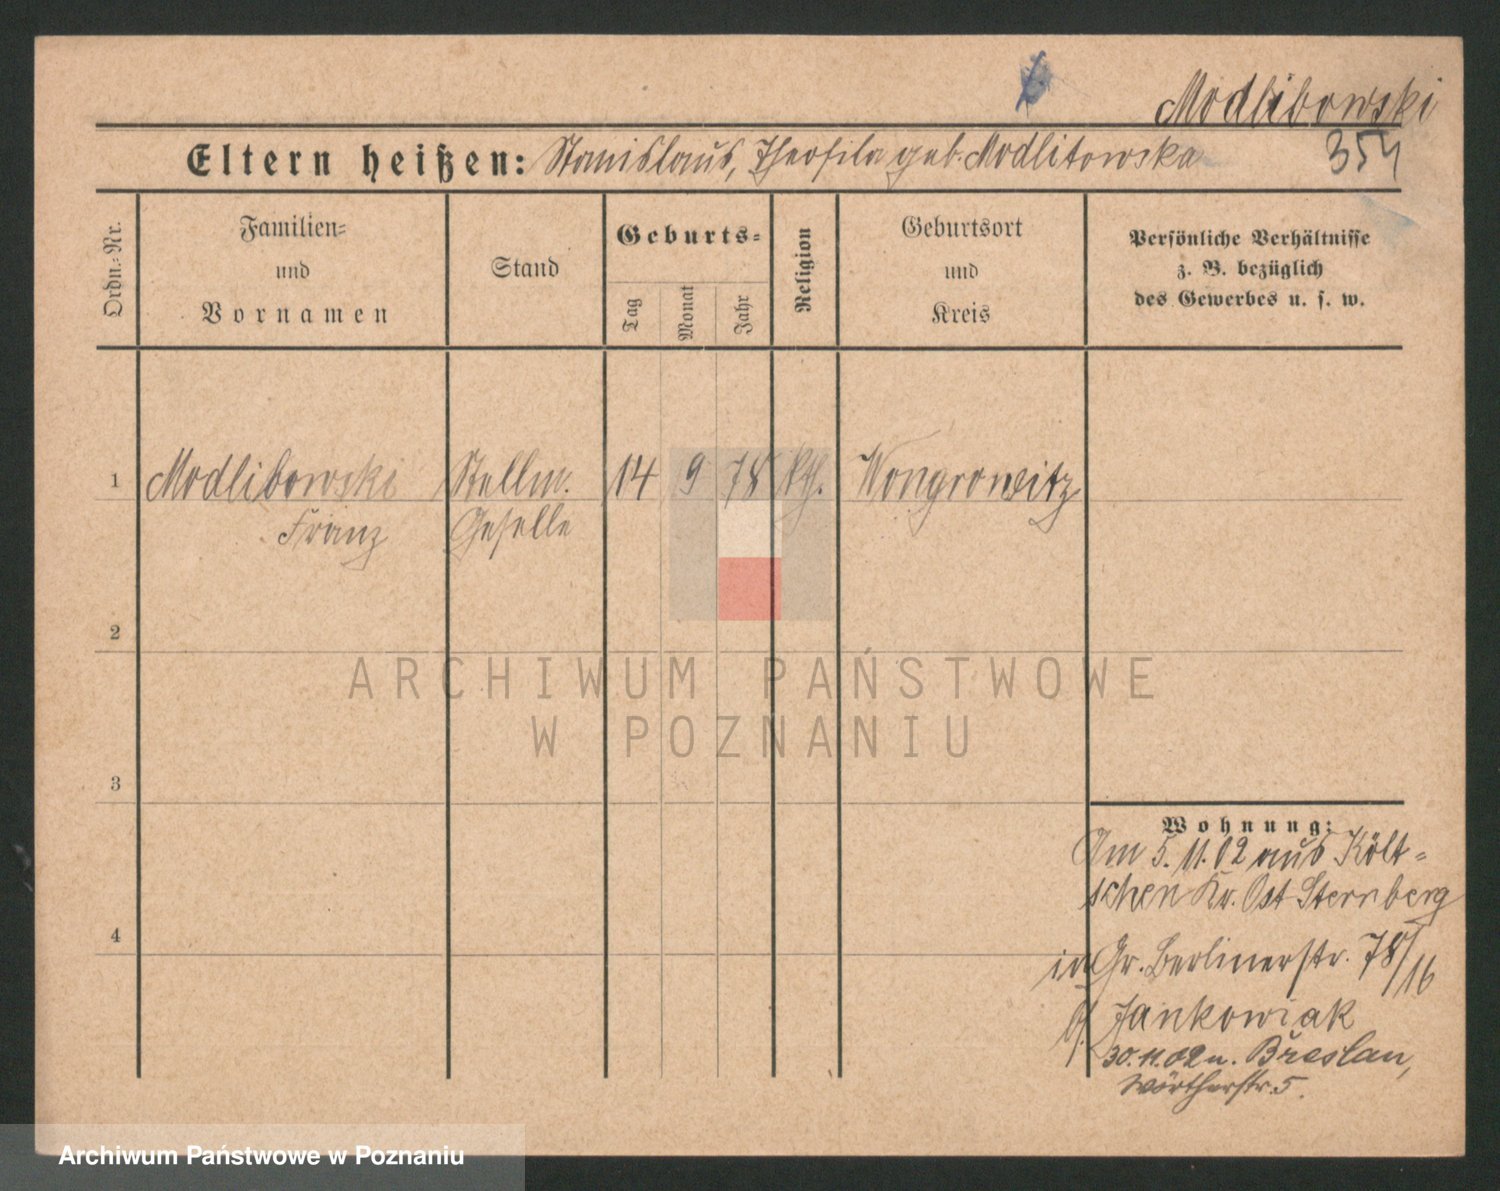 Modlibowski
Eltern heißen: Stanislaus, Theofila geb. Modlitowska
354
Ordn.-Nr.
Familien-
und
Vornamen
Stand
Geburts-
Tag
Monat
Jahr
Religion
Geburtsort
und
Kreis
Persönliche Verhältnisse
z. B. bezüglich
des Gewerbes u. s. w.
1 Modlibowski Stellm. 14 9 78 kth. Wongrowitz
Franz Geselle
2
3
4
Wohnung:
Am 5. 11. 02 aus Költ-
schen Kr. Ost Sternberg
in Gr. Berlinerstr. 78/16
b/ Jankowiak
30. 11. 02 n. Breslau,
Wörtherstr. 5.
ARCHIWUM PAŃSTWOWE
W POZNANIU
Archiwum Państwowe w Poznaniu